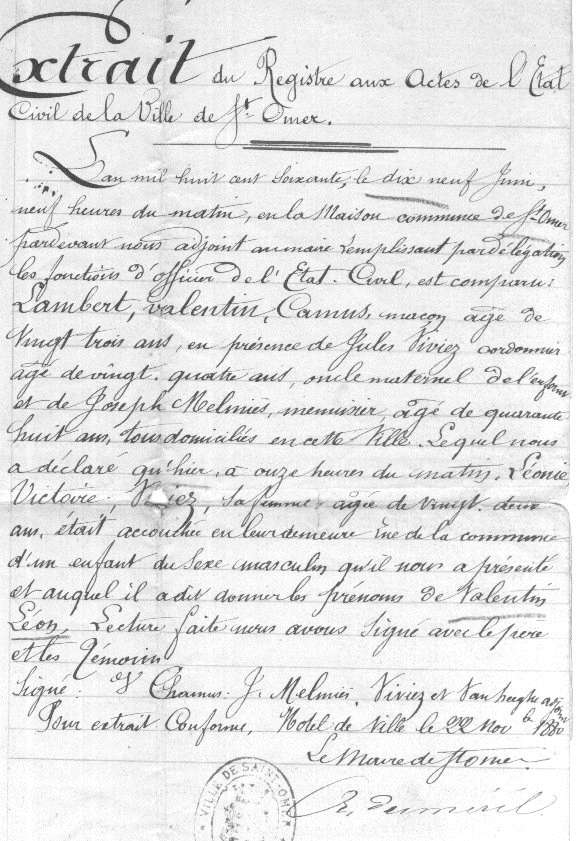 Extrait du Registre aux Actes de l'Etat
Civil de la Ville de St. Omer.
L'an mil huit cent soixante, le dix neuf Juin,
neuf heures du matin, en la Maison commune de St Omer
pardevant nous adjoint au maire remplissant par délégation
les fonctions d'officier de l'Etat-Civil, est comparu:
Lambert, valentin, Camus, maçon âgé de
vingt trois ans, en présence de Jules Viviez cordonnier
âgé de vingt-quatre ans, oncle maternel de l'enfant
et de Joseph Melmies, menuisier, âgé de quarante
huit ans, tous domiciliés en cette Ville. Lequel nous
a déclaré qu'hier, à onze heures du matin, Léonie
Victoire, Viviez, sa femme, agée de vingt-deux
ans, était accouchée en leur demeure rue de la commune
d'un enfant du Sexe masculin qu'il nous a présenté
et auquel il a dit donner les prénoms de Valentin
Léon. Lecture faite nous avons Signé avec le père
et les Témoins
Signé: Chamus: J. Melmies, Viviez et
Pour extrait Conforme, Hotel de Ville le 22 Nov 1880
Le Maire de St Omer
VILLE DE SAINT-OMER